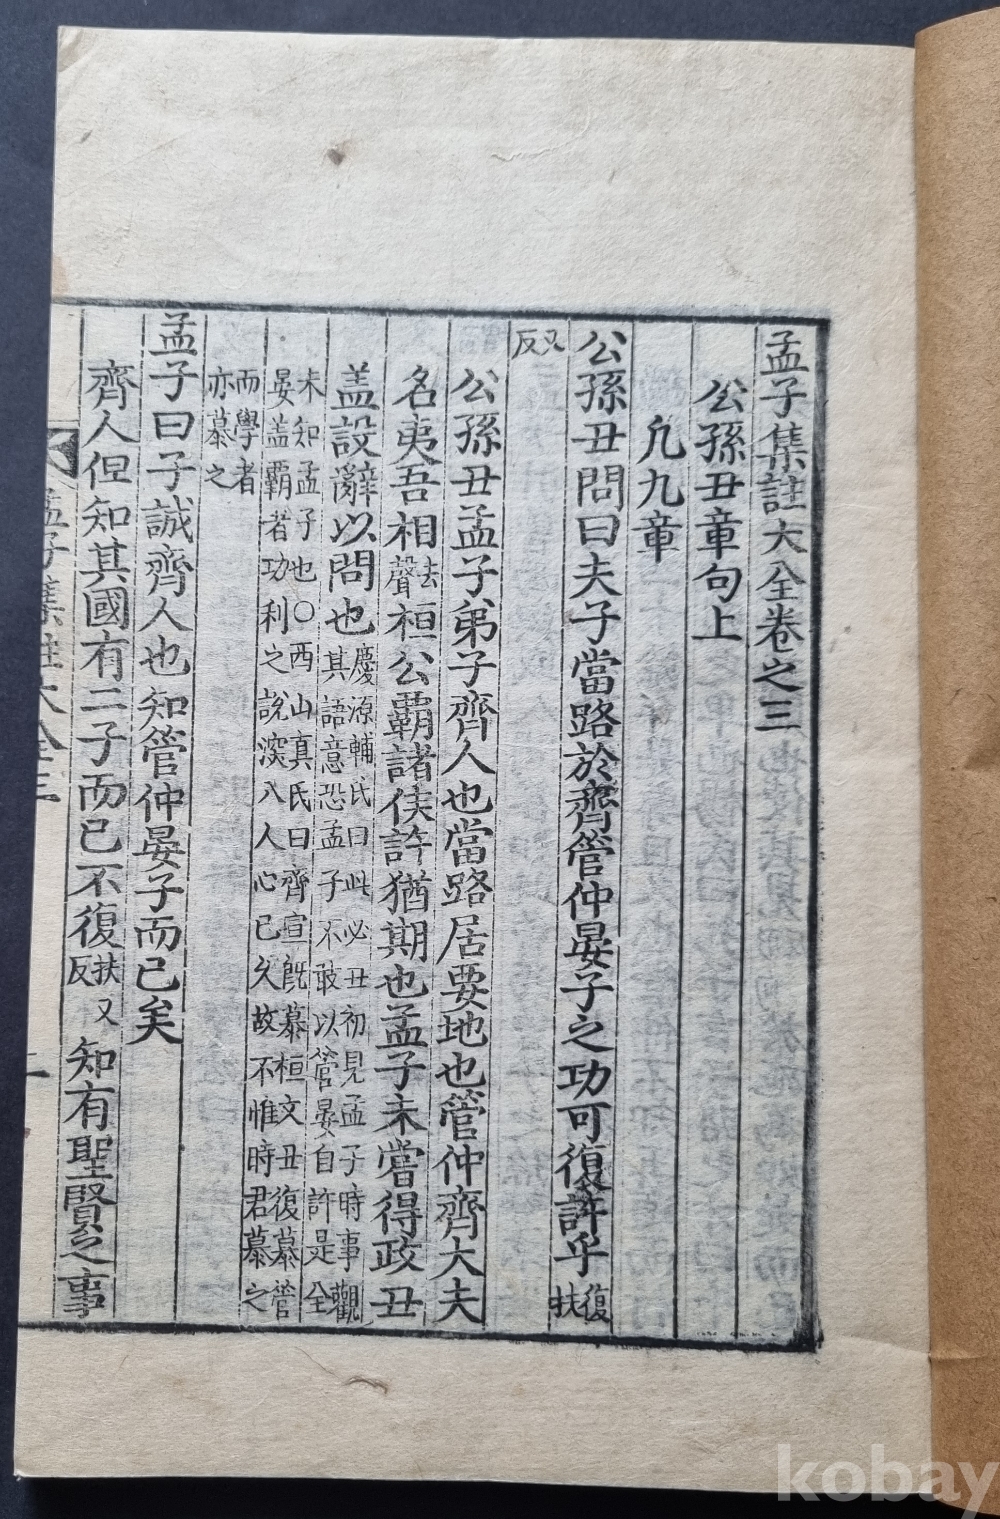 孟子集註大全卷之三
公孫丑章句上
凡九章
公孫丑問曰夫子當路於齊管仲晏子之功可復許乎復扶
又反
公孫丑孟子弟子齊人也當路居要地也管仲齊大夫
名夷吾相去聲桓公霸諸侯許猶期也孟子未嘗得政丑
盖設辭以問也慶源輔氏曰此必丑初見孟子時事觀其語意恐孟子不敢以管晏自許是全
未知孟子也○西山真氏曰齊宣旣慕桓文丑復慕管晏盖霸者功利之說深入人心已久故不惟時君慕之
而學者亦慕之
孟子曰子誠齊人也知管仲晏子而已矣
齊人但知其國有二子而已不復扶又反知有聖賢之事
孟子集註大全三
一
kobay